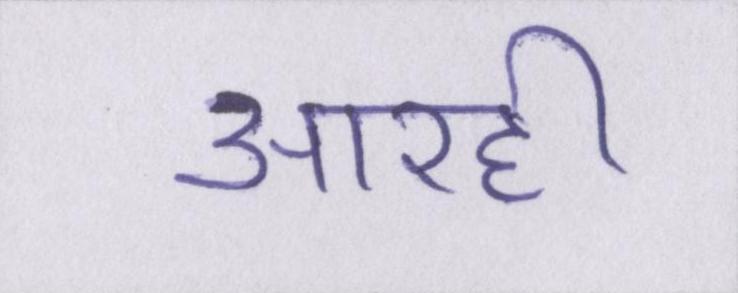 आरही